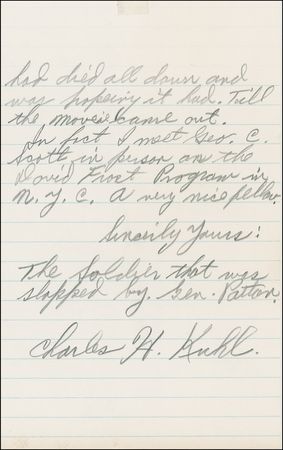 had died all down and
was hopeing it had. Till
the movie came out.
In fact I meet Geo. C.
Scott in person on the
David Frost Program in
N. Y. C. A very nice fellow.
Sincerily Yours:
The Soldier that was
slapped by. Gen. Patton.
Charles H. Kuhl.